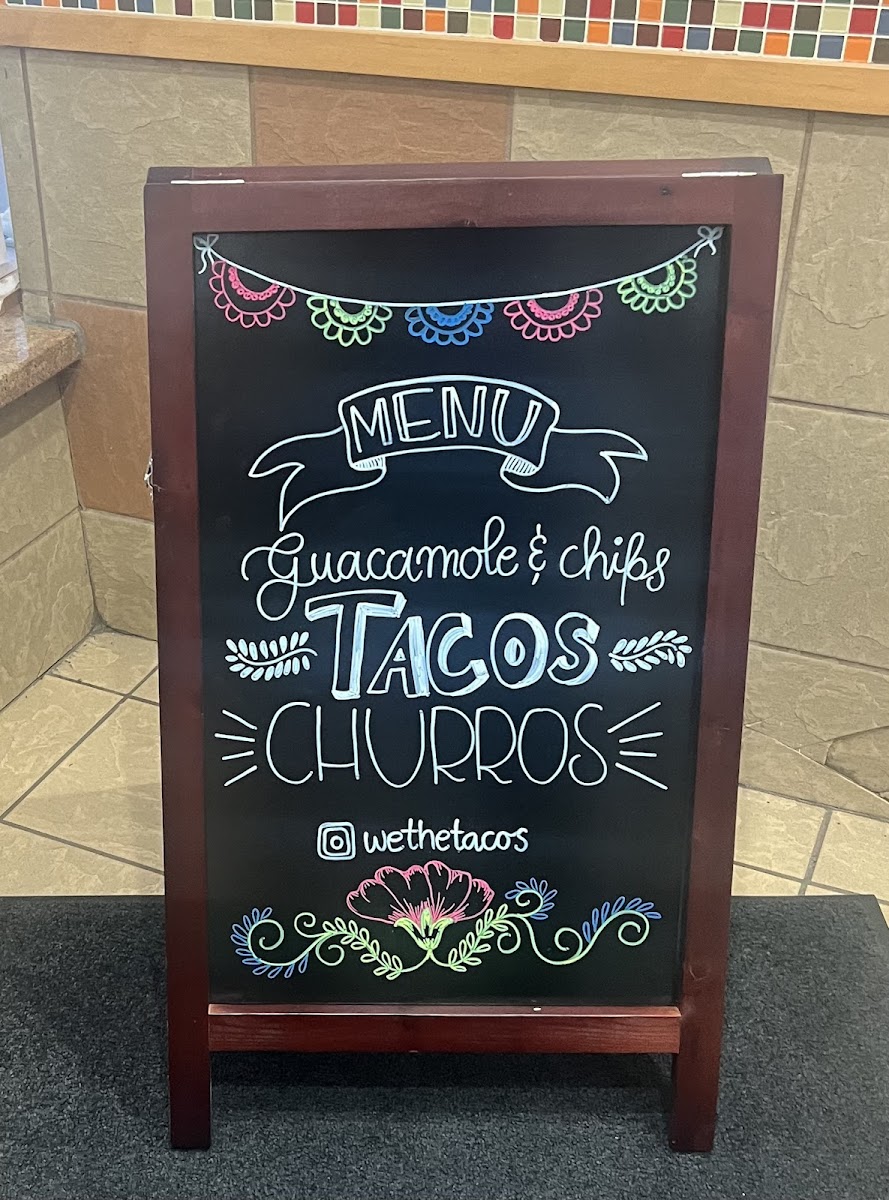 MENU
guacamole & chips
TACOS
CHURROS
wethetacos